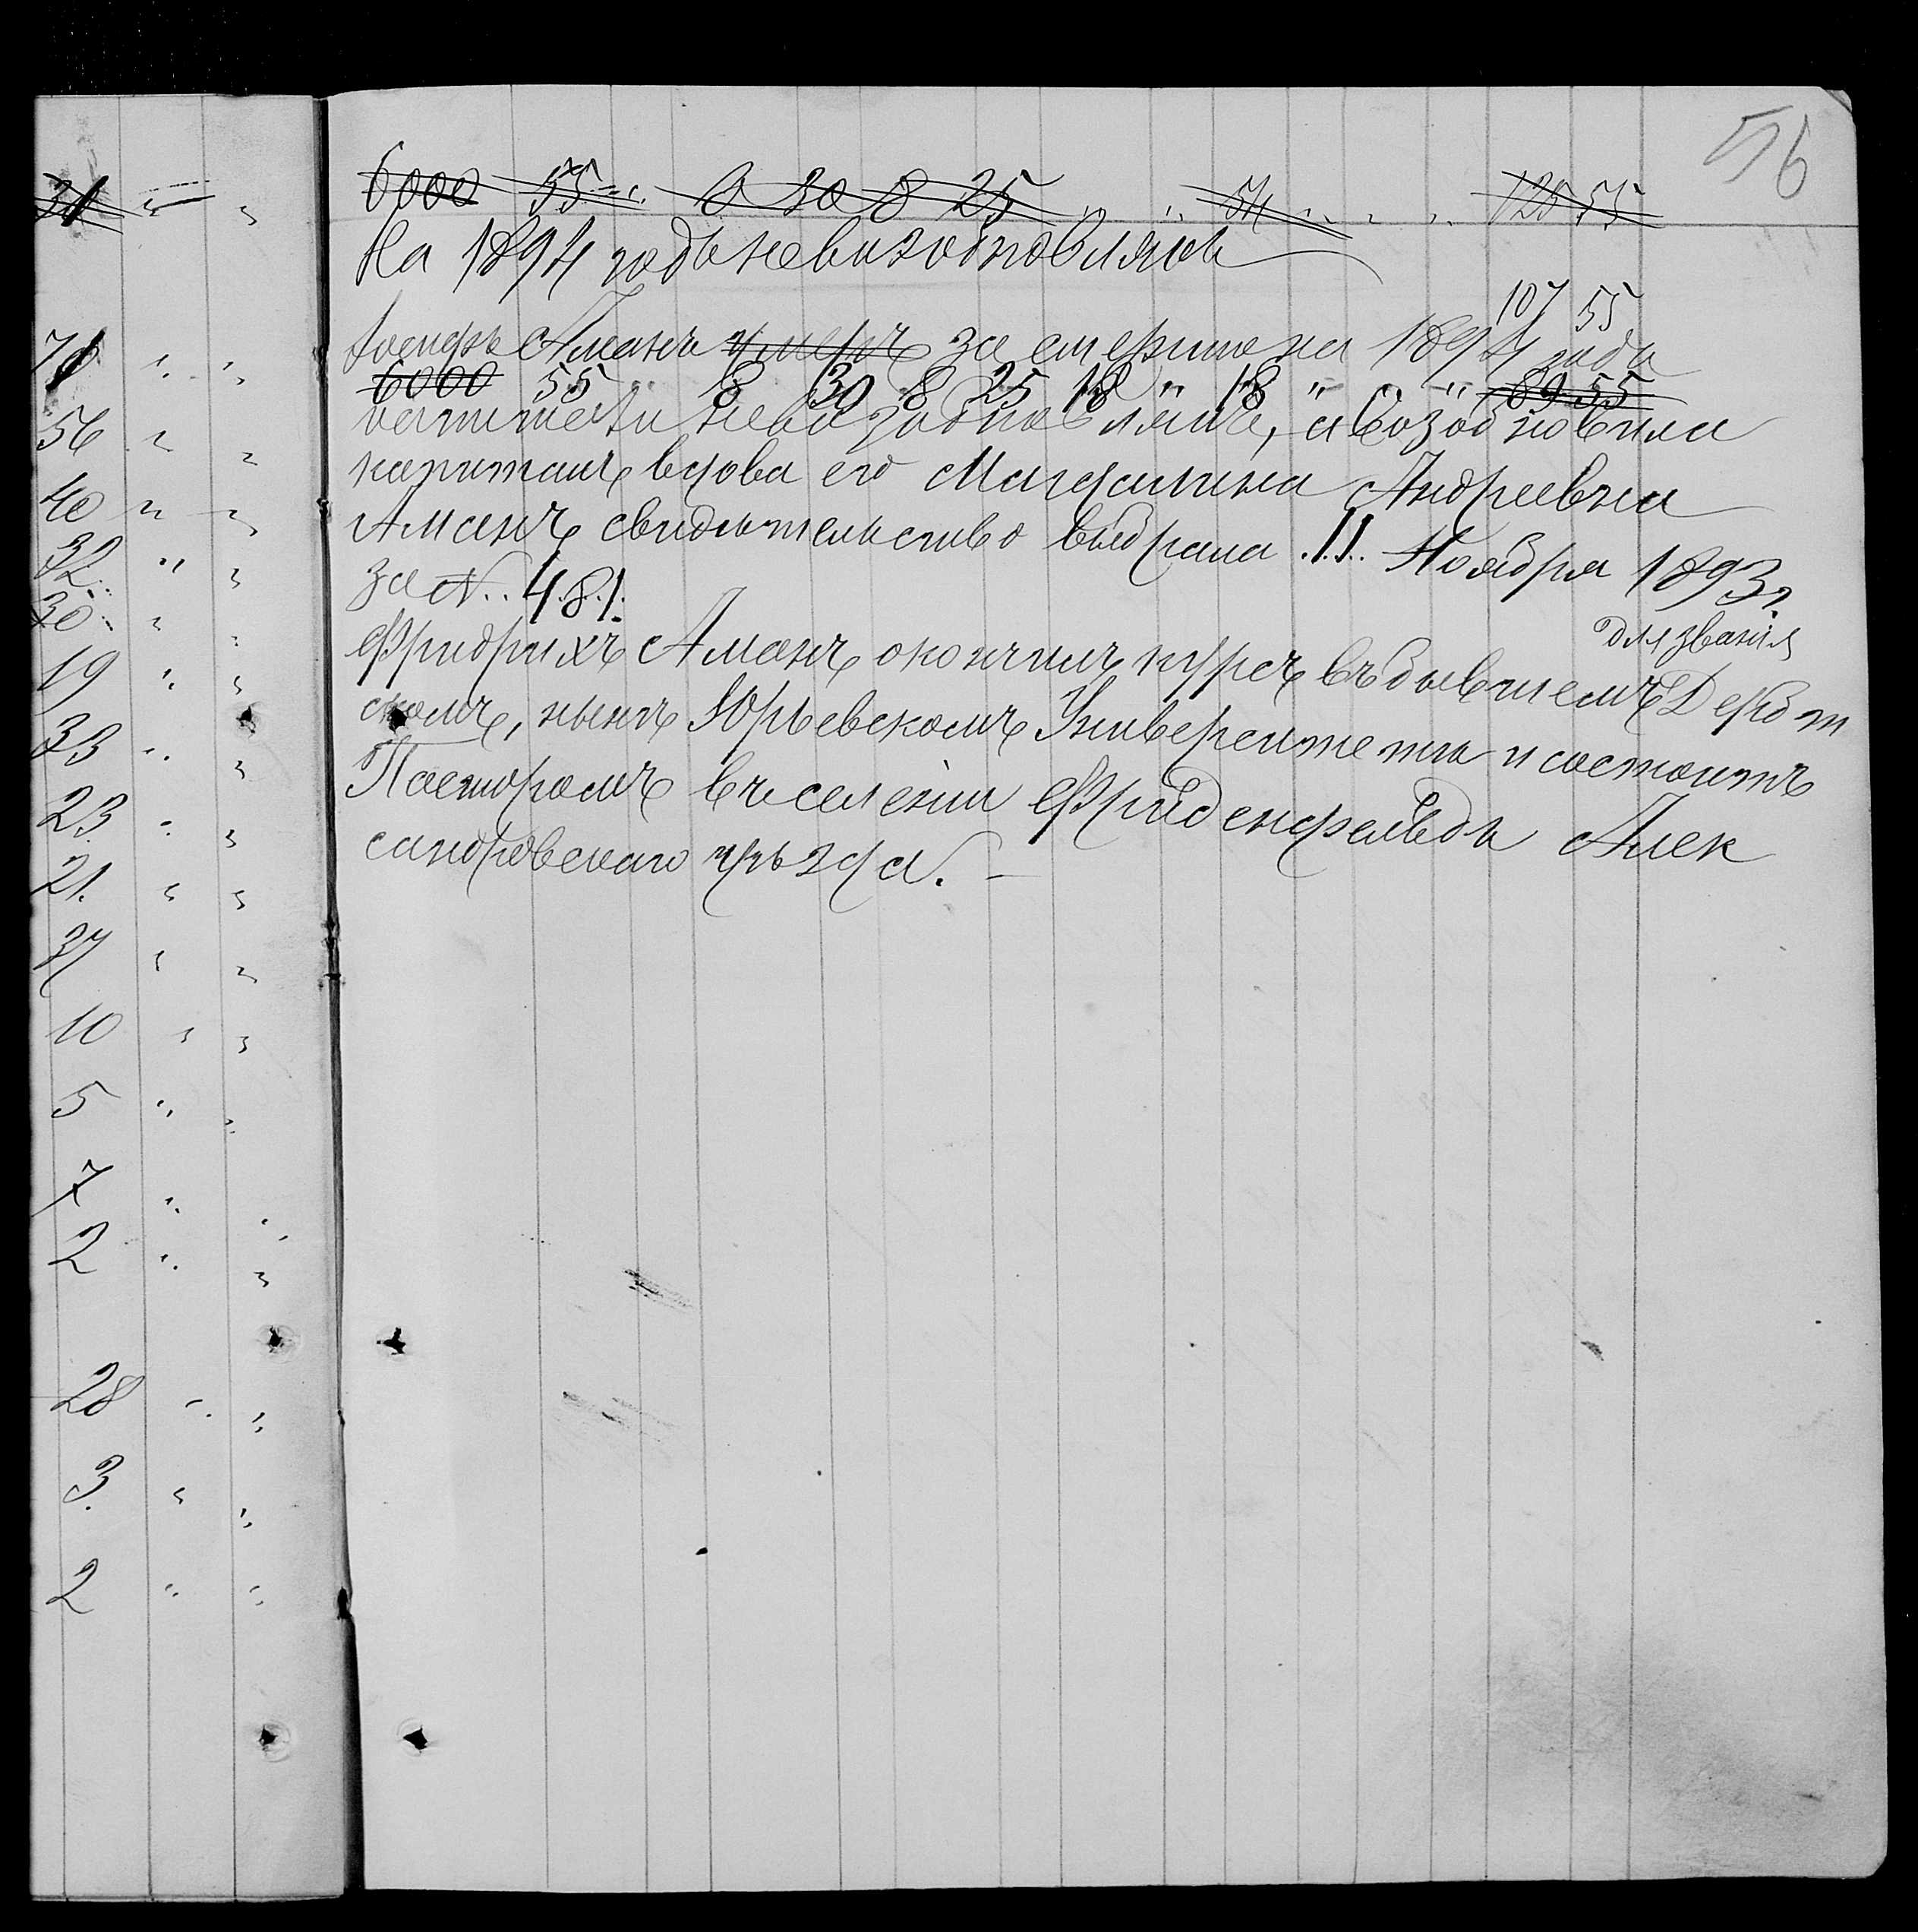 56
31 " "
6000 55 " 8 30 8 25 " " 54 " " " 125 55
На 1894 годъ невозобновлялъ
107 55
Іосифъ Аманъ умеръ за смертію на 1894 годъ
6000 55 " 8 30 8 25 18 " 18 " " " 89 55
невозобновлялъ, а возобновила
капиталъ вдова его Магдалина Андреевна
Аманъ свидѣтельство выбрала 11 Ноября 1893 г.
за №. 481.
для званія
Фридрихъ Аманъ окончилъ курсъ въ бывшемъ Дерпт
скомъ, нынѣ Юрьевскомъ Университетѣ и состоитъ
Пасторомъ въ селеніи Фриденфельдъ Алек
сандровскаго уѣзда. —
71 " "
56 " "
40 " "
32 " "
30 " "
19 " "
33 " "
23 " "
21. " "
37 " "
10 " "
5 " "
7 " "
2 " "
28 " "
3. " "
2 " "